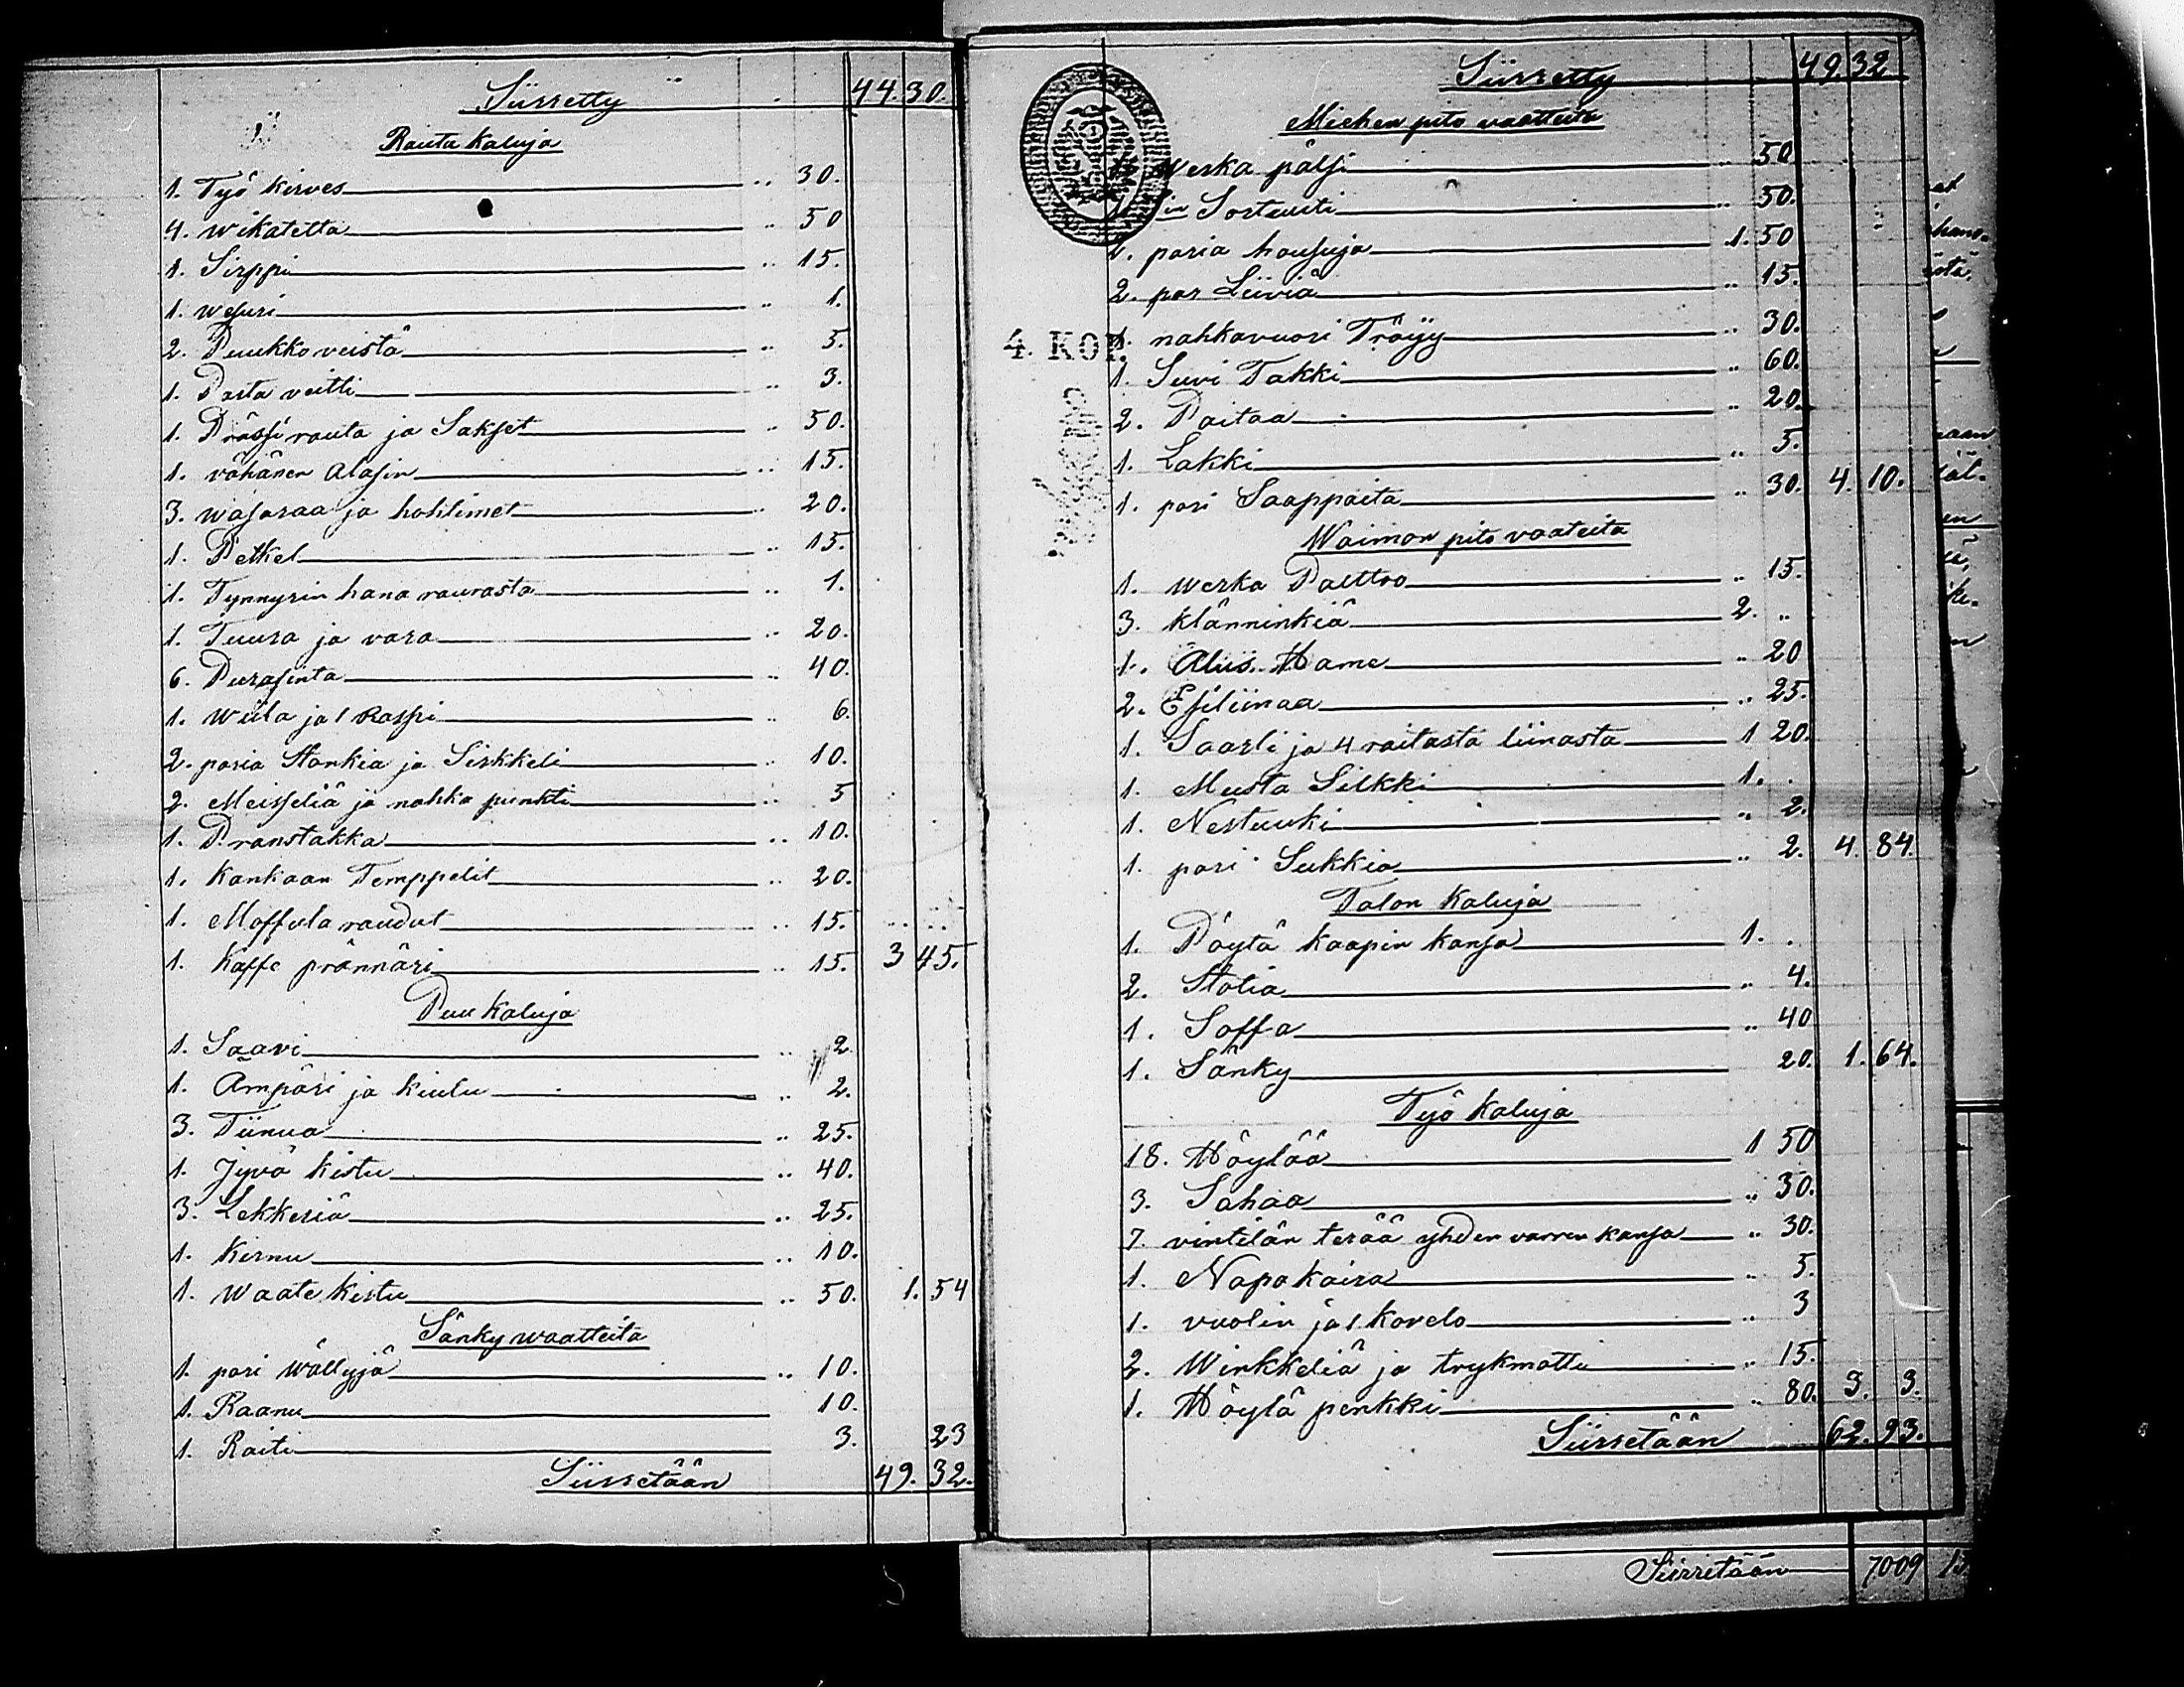 Siirretty .. 44. 30.
Rauta kaluja
1. Työ kirves .. 30.
4. wikatetta .. 50
1. Sirppi .. 15.
1. wesuri .. 1.
2. Puukko veistä .. 5.
1. Parta veitti .. 3.
1. Prässi rauta ja Sakset .. 50.
1. vähänen Alasin .. 15.
3. wasaraa ja hohtimet .. 20.
1. Petkel .. 15.
1. Tynnyrin hana raurasta .. 1.
1. Tuura ja vara .. 20.
6. Purasinta .. 40.
1. wiila ja 1 Raspi .. 6.
2. paria Stankia ja Sirkkeli .. 10.
2. Meisseliä ja nahka punkti .. 5
1. Pranstakka .. 10.
1. Kankaan Temppelit .. 20.
1. Moffula raudut .. 15.
1. Kaffe prännäri .. 15. 3 45.
Puu kaluja
1. Saavi .. 2
1. Ämpäri ja kiulu .. 2.
3. Tiinua .. 25.
1. Jyvä kistu .. 40.
3. Lekkeriä .. 25.
1. Kirnu .. 10.
1. Waate kistu .. 50. 1. 54
Sänky waatteita
1. pari wällyjä .. 10.
1. Raanu 10.
1. Raiti 3. 23
Siirretään 49. 32.
Siirretty 49. 32
Miehen pito vaatteita
werka pälsi .. 50
Sortuuti .. 50.
2. paria housuja 1. 50
2. par Liiviä .. 15.
1. nahkavuori Tröyy .. 30.
4. KOP.
1. Suvi Takki .. 60.
2. Paitaa .. 20.
1. Lakki .. 5.
1. pari Saappaita .. 30. 4. 10.
Waimon pito vaateita
1. werka Palttoo .. 15.
3. klänninkiä 2. ..
1. Alus Hame .. 20
2. Esiliinaa .. 25.
1. Saarli ja 4 raitasta liinasta 1 20.
1. Musta Silkki 1. .
1. Nestuuki .. 2.
1. pari Sukkia .. 2. 4. 84.
Talon Kaluja
1. Pöytä kaapin kansa 1. .
2. Stolia .. 4.
1. Soffa .. 40
1. Sänky 20. 1. 64.
Työ kaluja
18. Höylää 1 50
3. Sahaa .. 30.
7. vintilän terää yhden varren kansa .. 30.
1. Napakaira .. 5.
1. vuolin ja 1 Kovelo .. 3
2. Winkkeliä ja trykmotti .. 15.
1. Höylä penkki .. 80. 3. 3.
Siirretään 62. 93.
Siirretään 7009 15